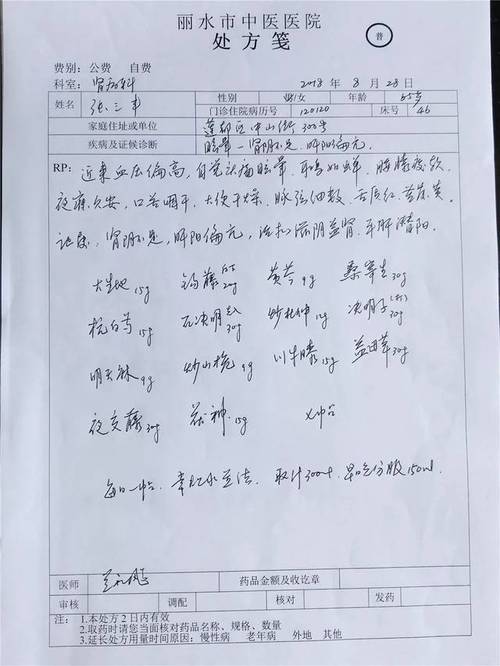 丽水市中医医院
处方笺
普
费别：公费 自费
科室：肾病科 2018 年 8 月 28 日
姓名 张三丰 性别 男/女 年龄 65岁
门诊住院病历号 120120 床号 46
家庭住址或单位 莲都区中山街300号
疾病及证候诊断 眩晕－肾阴不足，肝阳偏亢
RP： 近来血压偏高，自觉头痛眩晕，耳鸣如蝉，腰膝酸软，
夜寐欠安，口苦咽干，大便干燥，脉弦细数，舌质红，苔薄黄。
证属，肾阴不足，肝阳偏亢，治拟滋阴益肾，平肝潜阳。
大生地15g 钩藤 20g 黄芩9g 桑寄生30g
杭白芍15g 石决明先入30g 炒杜仲12g 决明子30g
明天麻9g 炒山栀9g 川牛膝15g 益母草30g
夜交藤30g 茯神15g ×7帖
每日一帖，取汁300ml，早晚分服150ml
医师 药品金额及收讫章
审核 调配 核对 发药
注：
1.本处方2日内有效
2.取药时请您当面核对药品名称、规格、数量
3.延长处方用量时间原因：慢性病 老年病 外地 其他